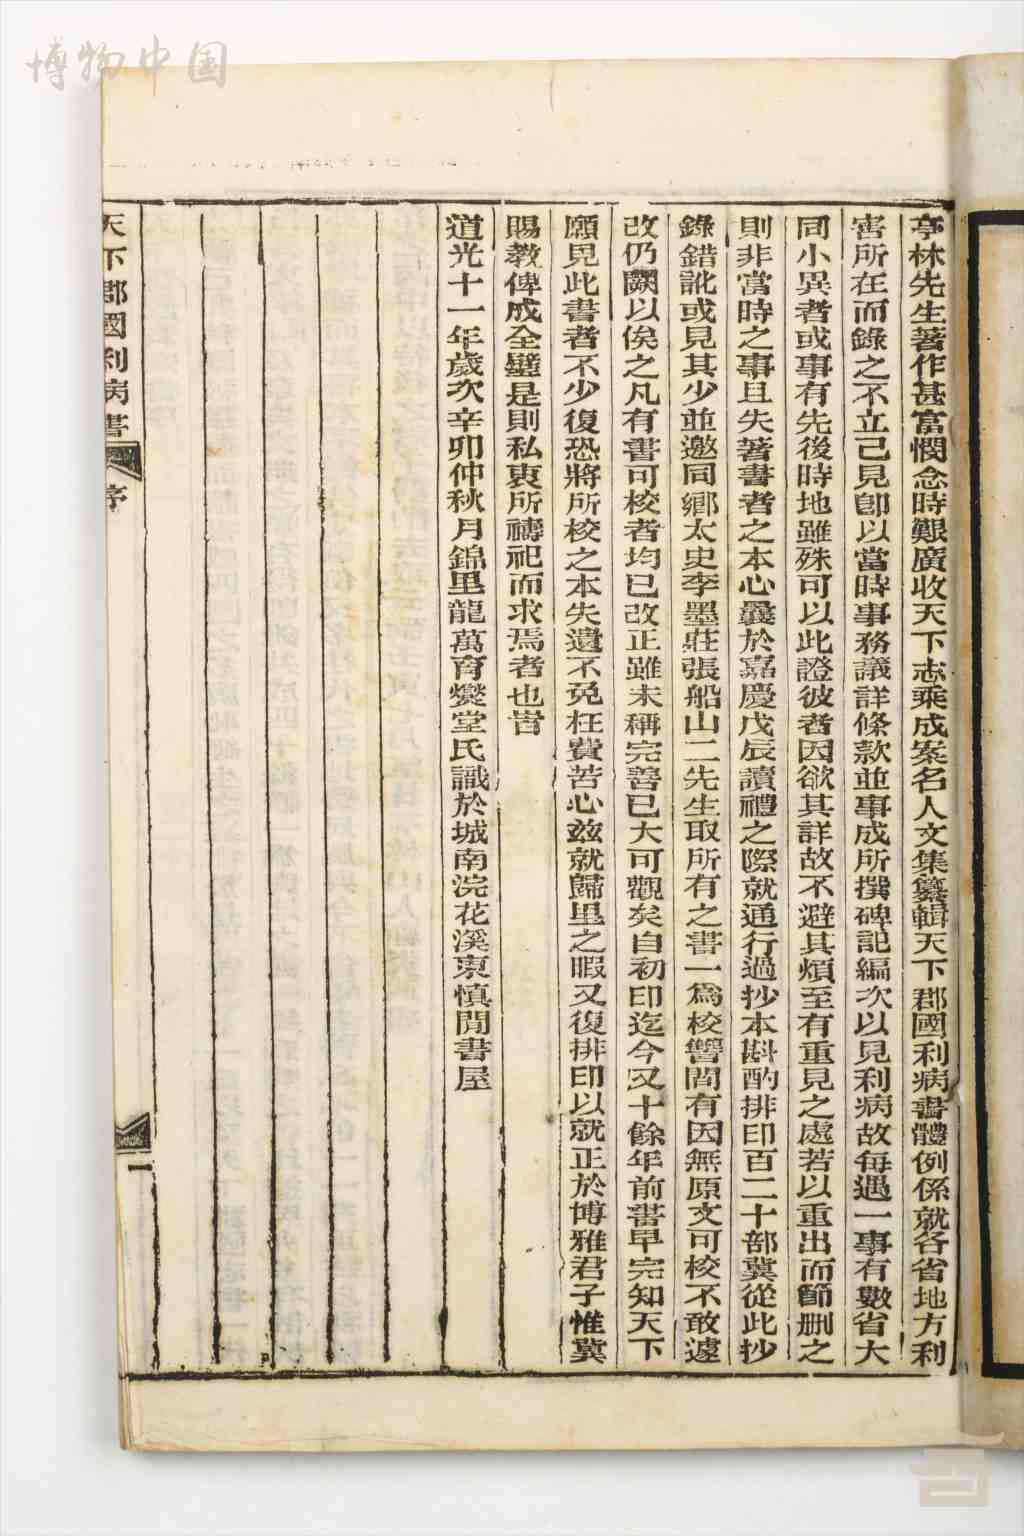 博物中国
亭林先生著作甚富憫念時艱廣收天下志乘成案名人文集纂輯天下郡國利病書體例係就各省地方利
害所在而錄之不立己見卽以當時事務議詳條款並事成所撰碑記編次以見利病故每遇一事有數省大
同小異者或事有先後時地雖殊可以此證彼者因欲其詳故不避其煩至有重見之處若以重出而節删之
則非當時之事且失著書者之本心曩於嘉慶戊辰讀禮之際就通行過抄本斟酌排印百二十部冀從此抄
錄錯訛或見其少並邀同鄉太史李墨莊張船山二先生取所有之書一為校讐間有因無原文可校不敢遽
改仍闕以俟之凡有書可校者均已改正雖未稱完善已大可觀矣自初印迄今又十餘年前書早完知天下
願見此書者不少復恐將所校之本失遺不免枉費苦心兹就歸里之暇又復排印以就正於博雅君子惟冀
賜教俾成全璧是則私衷所禱祀而求焉者也旹
道光十一年歲次辛卯仲秋月錦里龍萬育燮堂氏識於城南浣花溪東慎閒書屋
天下郡國利病書 序
一